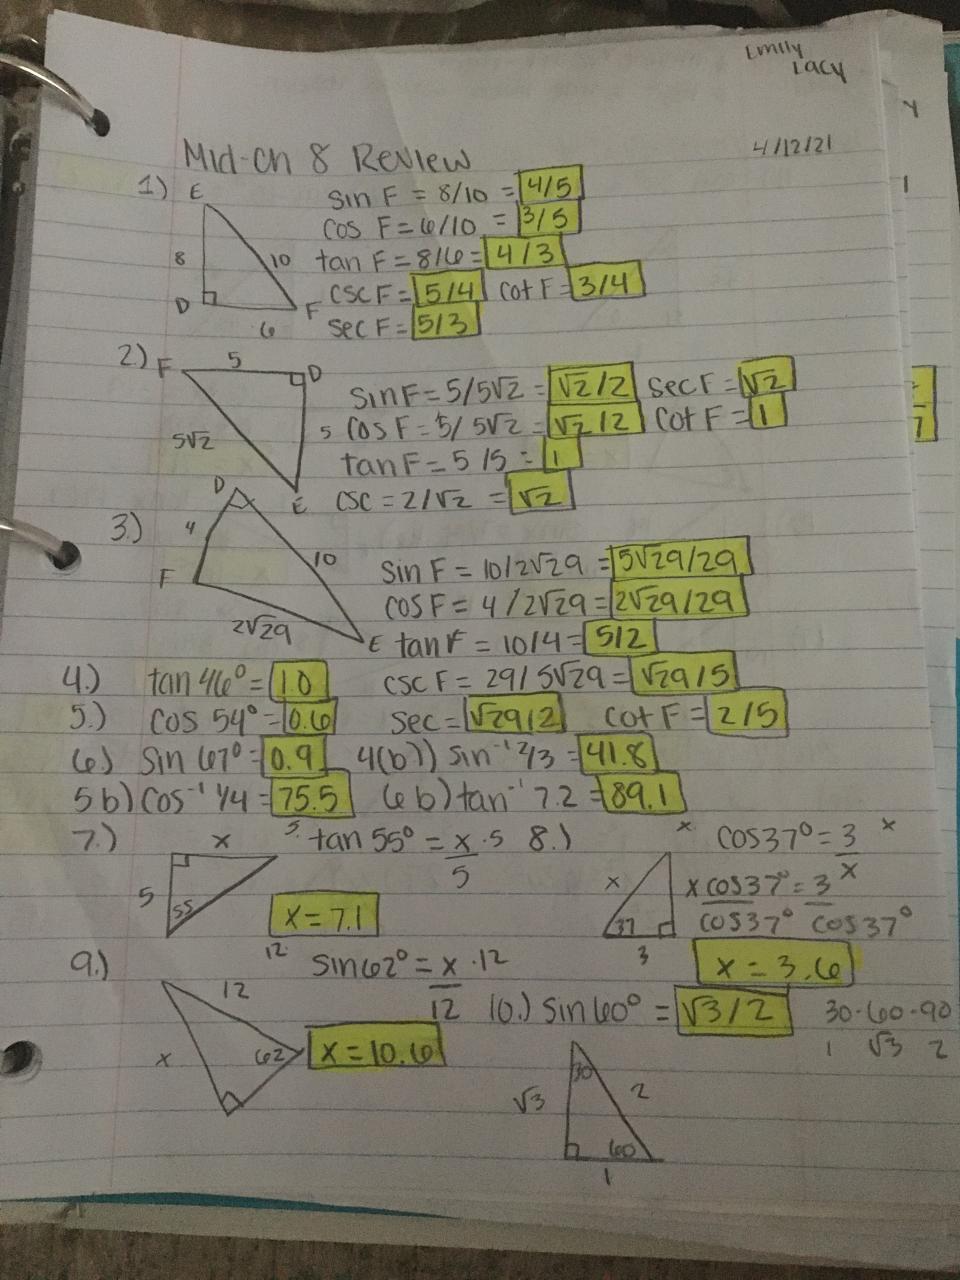 Emily
Lacy
Mid-Ch 8 Review
4/12/21
1) E
8
10
D
F
6
sin F = 8/10 = 4/5
cos F = 6/10 = 3/5
tan F = 8/6 = 4/3
csc F = 5/4 cot F = 3/4
sec F = 5/3
2) F 5 D
5√2
5
E
sin F = 5/5√2 = √2/2 sec F = √2
cos F = 5/5√2 = √2/2 cot F = 1
tan F = 5/5 = 1
csc = 2/√2 = √2
3.) D
4
10
F
2√29
E
sin F = 10/2√29 = 5√29/29
cos F = 4/2√29 = 2√29/29
tan F = 10/4 = 5/2
csc F = 29/5√29 = √29/5
sec = √29/2 cot F = 2/5
4.) tan 46° = 1.0
5.) cos 54° = 0.6
6) sin 67° = 0.9 4(b)) sin⁻¹ 2/3 = 41.8
5b) cos⁻¹ 1/4 = 75.5 6b) tan⁻¹ 7.2 = 89.1
7.) x
5
55
5. tan 55° = x/5 · 5
x = 7.1
8.) x
37
3
x cos 37° = 3/x x
x cos 37° = 3
cos 37° cos 37°
x = 3.6
9.) 12
x
62
12 sin 62° = x/12 · 12
x = 10.6
10.) sin 60° = √3/2
30-60-90
1 √3 2
30
√3
2
60
1